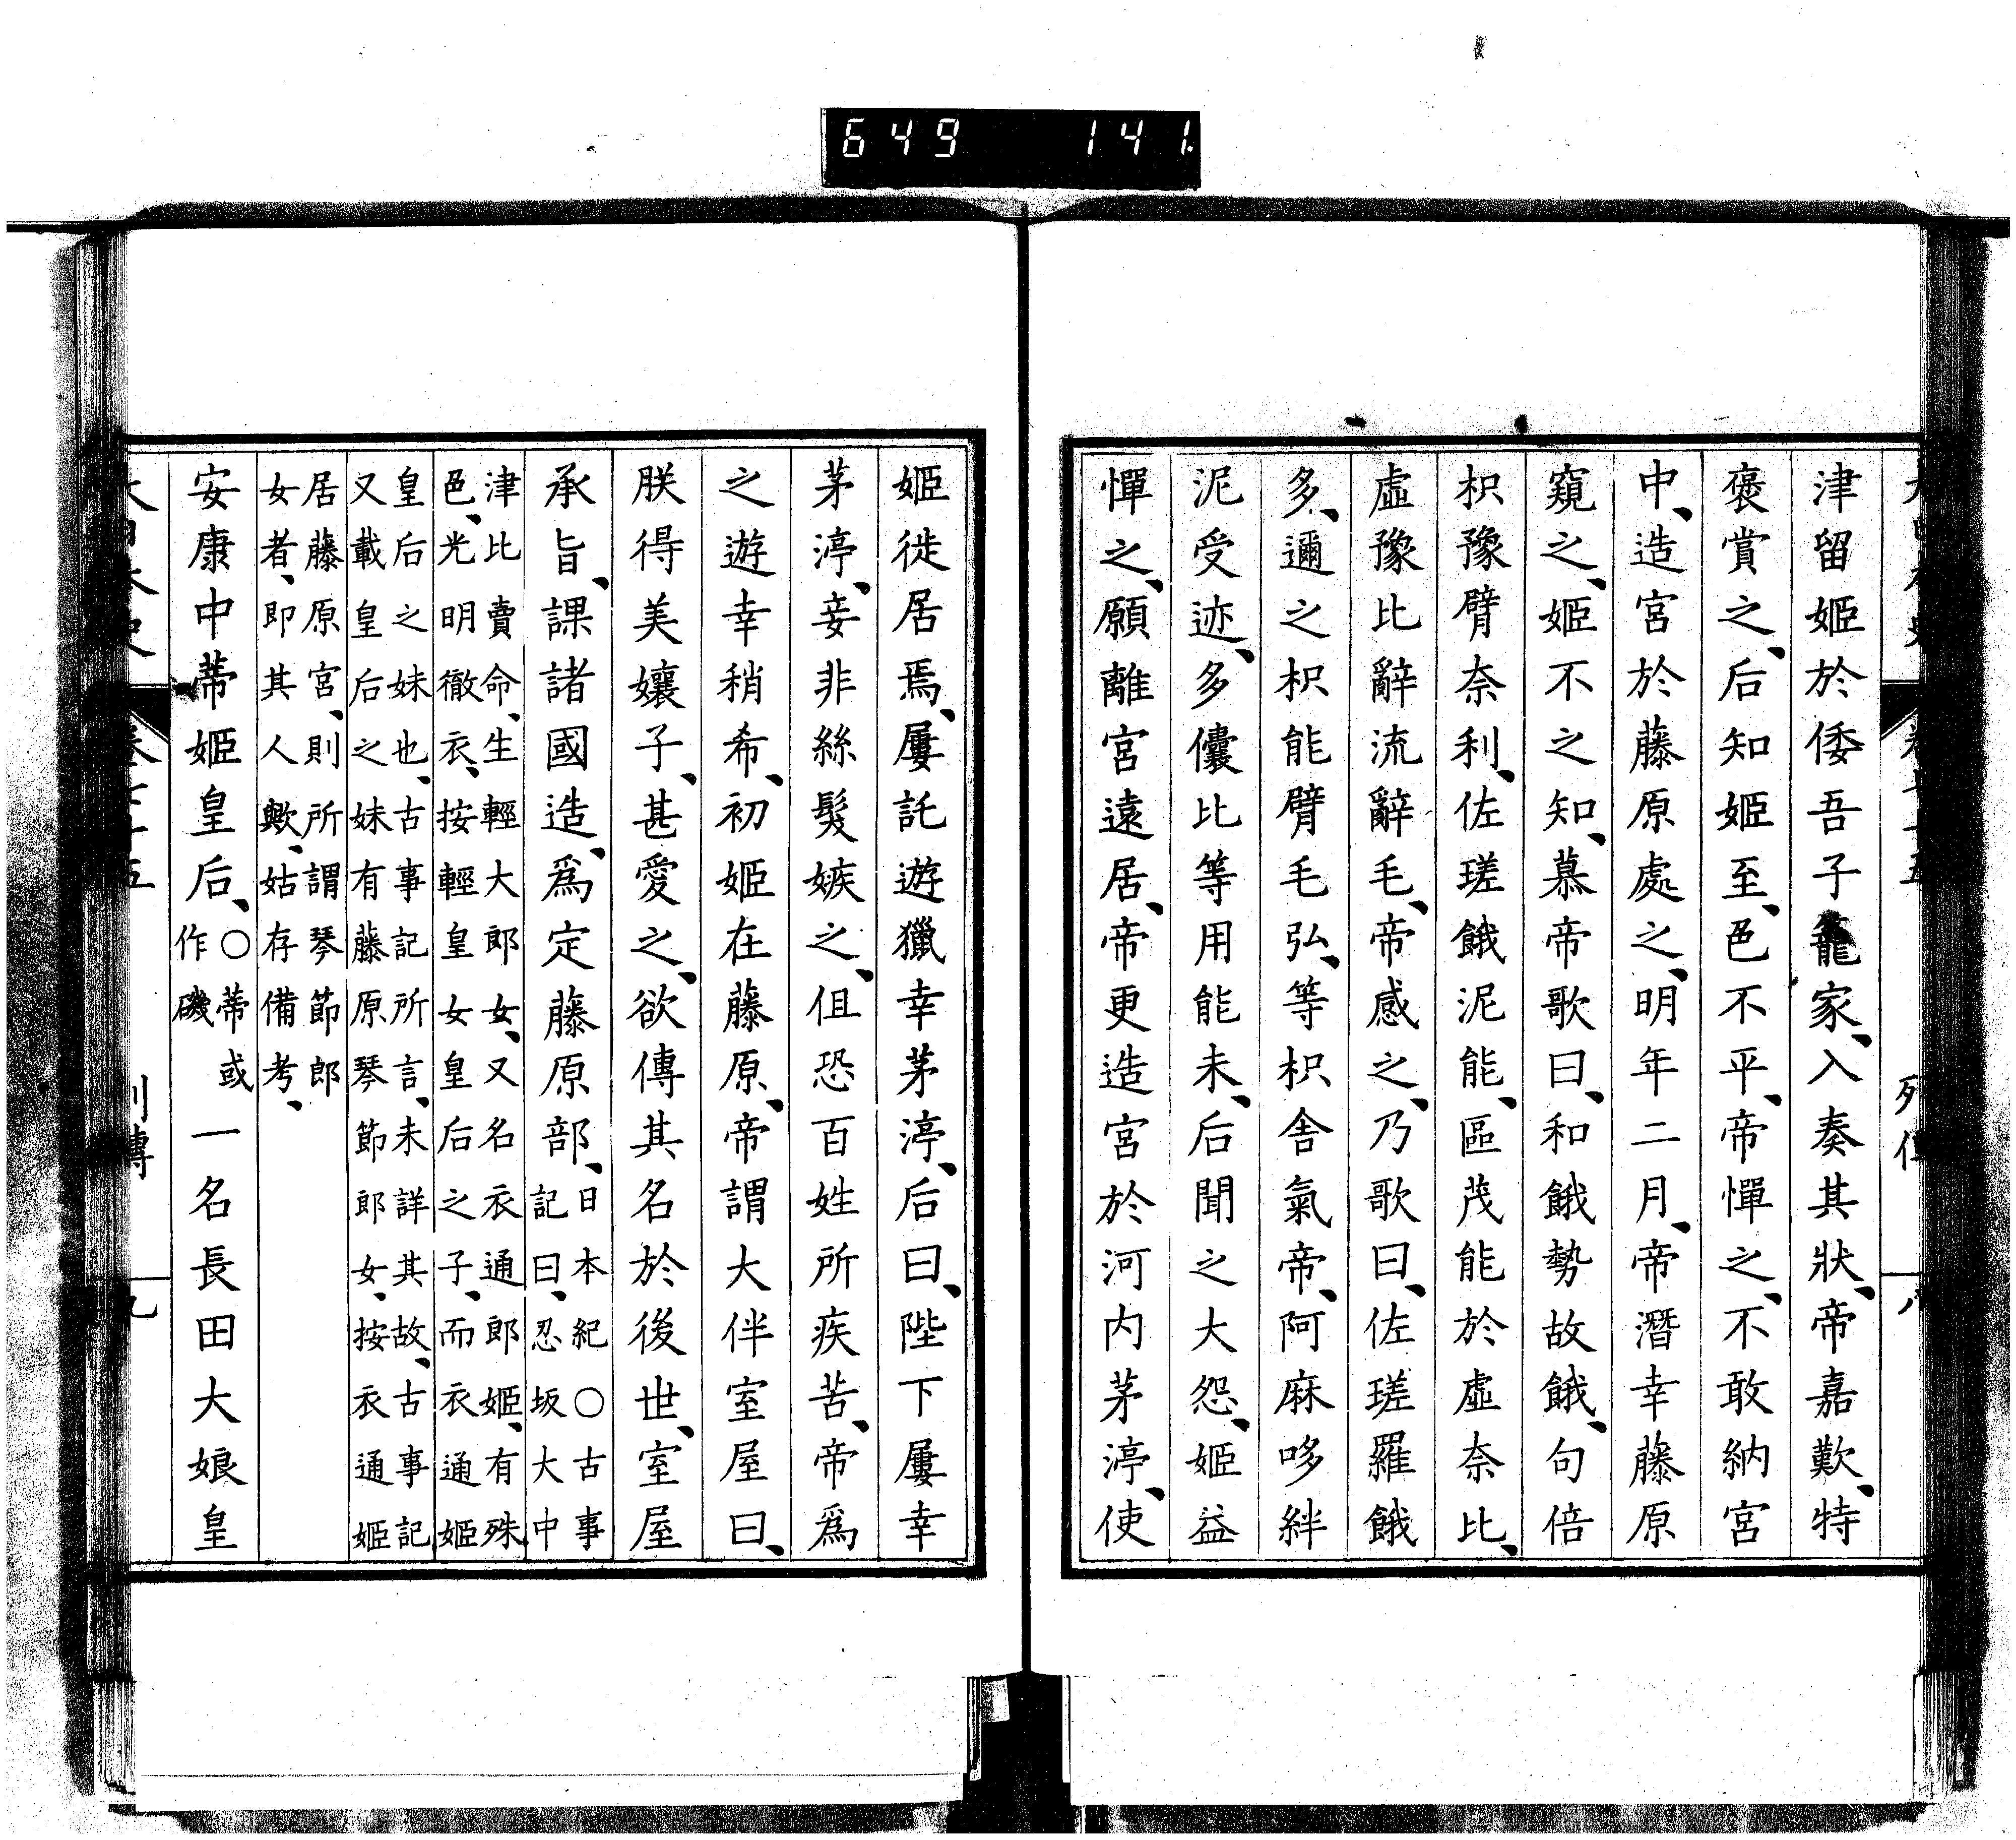 649 141
津留姬於倭吾子籠家、入奏其狀、帝嘉歎、特
褒賞之、后知姬至、色不平、帝憚之、不敢納宮
中、造宮於藤原處之、明年二月、帝潛幸藤原
窺之、姬不之知、慕帝歌曰、和餓勢故餓、句倍
枳豫臂奈利、佐瑳餓泥能、區茂能於虛奈比、
虛豫比辭流辭毛、帝感之、乃歌曰、佐瑳羅餓
多、邇之枳能臂毛弘、等枳舎氣帝、阿麻哆絆
泥受迹、多儾比等用能未、后聞之大怨、姬益
憚之、願離宮遠居、帝更造宮於河內茅渟、使
姬徙居焉、屢託遊獵幸茅渟、后曰、陛下屢幸
茅渟、妾非絲髮嫉之、但恐百姓所疾苦、帝爲
之遊幸稍希、初姬在藤原、帝謂大伴室屋曰、
朕得美孃子、甚愛之、欲傳其名於後世、室屋
承旨、課諸國造、爲定藤原部、日本紀○古事
記曰、忍坂大中
津比賣命、生輕大郎女、又名衣通郎姬、有殊
色、光明徹衣、按輕皇女皇后之子、而衣通姬
皇后之妹也、古事記所言、未詳其故、古事記
又載皇后之妹有藤原琴節郎女、按衣通姬
居藤原宮、則所謂琴節郎
女者、即其人歟、姑存備考、
安康中蒂姬皇后、○蒂或
作磯
一名長田大娘皇